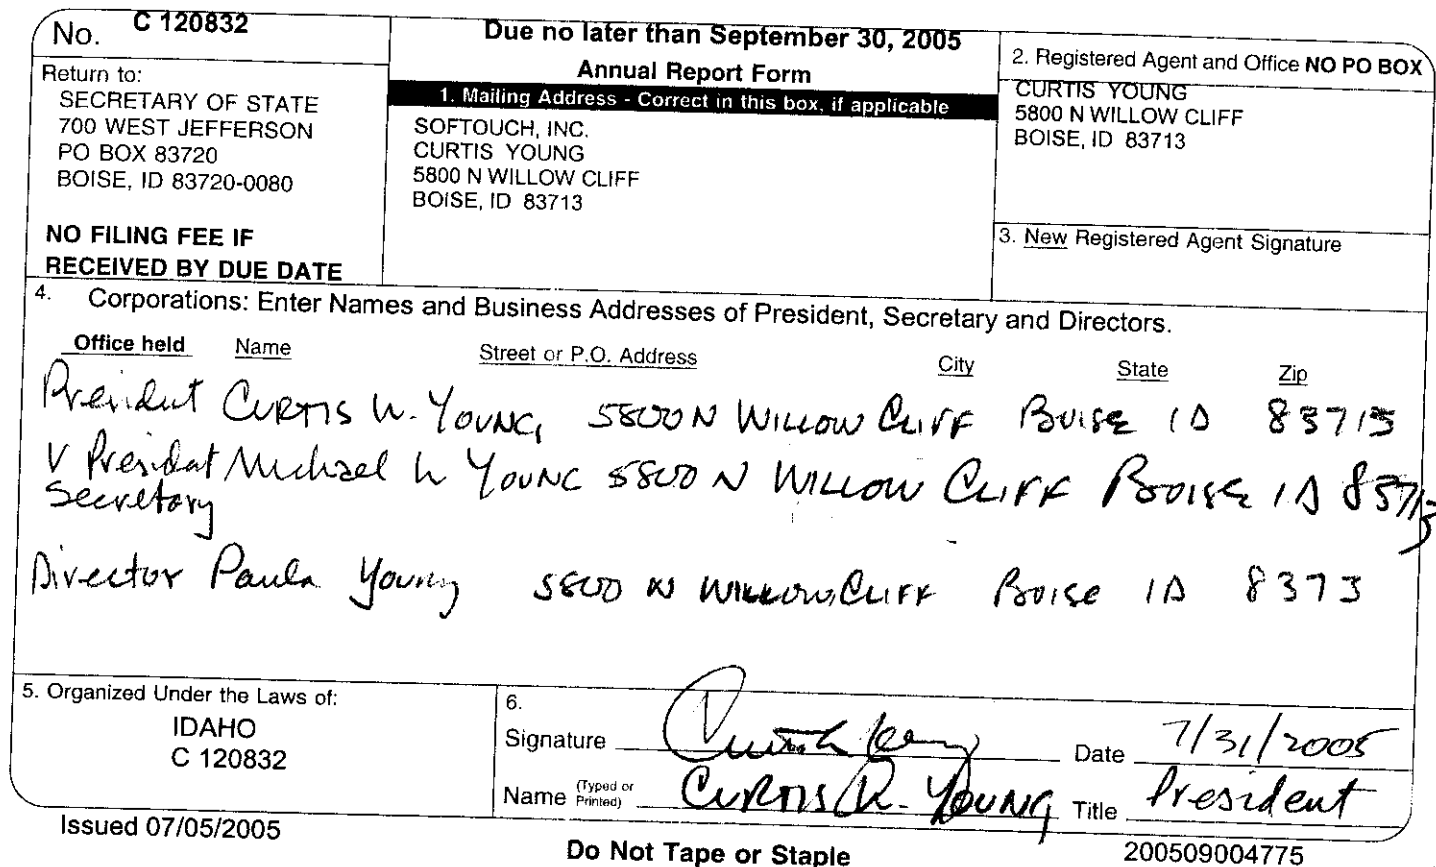 No. C 120832
Return to:
SECRETARY OF STATE
700 WEST JEFFERSON
PO BOX 83720
BOISE, ID 83720-0080
NO FILING FEE IF
RECEIVED BY DUE DATE
Due no later than September 30, 2005
Annual Report Form
1. Mailing Address - Correct in this box, if applicable
SOFTOUCH, INC.
CURTIS YOUNG
5800 N WILLOW CLIFF
BOISE, ID 83713
2. Registered Agent and Office NO PO BOX
CURTIS YOUNG
5800 N WILLOW CLIFF
BOISE, ID 83713
3. New Registered Agent Signature
4. Corporations: Enter Names and Business Addresses of President, Secretary and Directors.
Office held Name Street or P.O. Address City State Zip
President CURTIS YOUNG 5800 N WILLOW CLIFF BOISE ID 83713
V President Michael YOUNG 5800 N WILLOW CLIFF BOISE ID 83713
Secretary
Director Paula Young 5800 N WILLOW CLIFF BOISE ID 8373
5. Organized Under the Laws of:
IDAHO
C 120832
6.
Signature Date 7/31/2005
Name (Typed or Printed) CURTIS YOUNG Title President
Issued 07/05/2005
Do Not Tape or Staple
200509004775